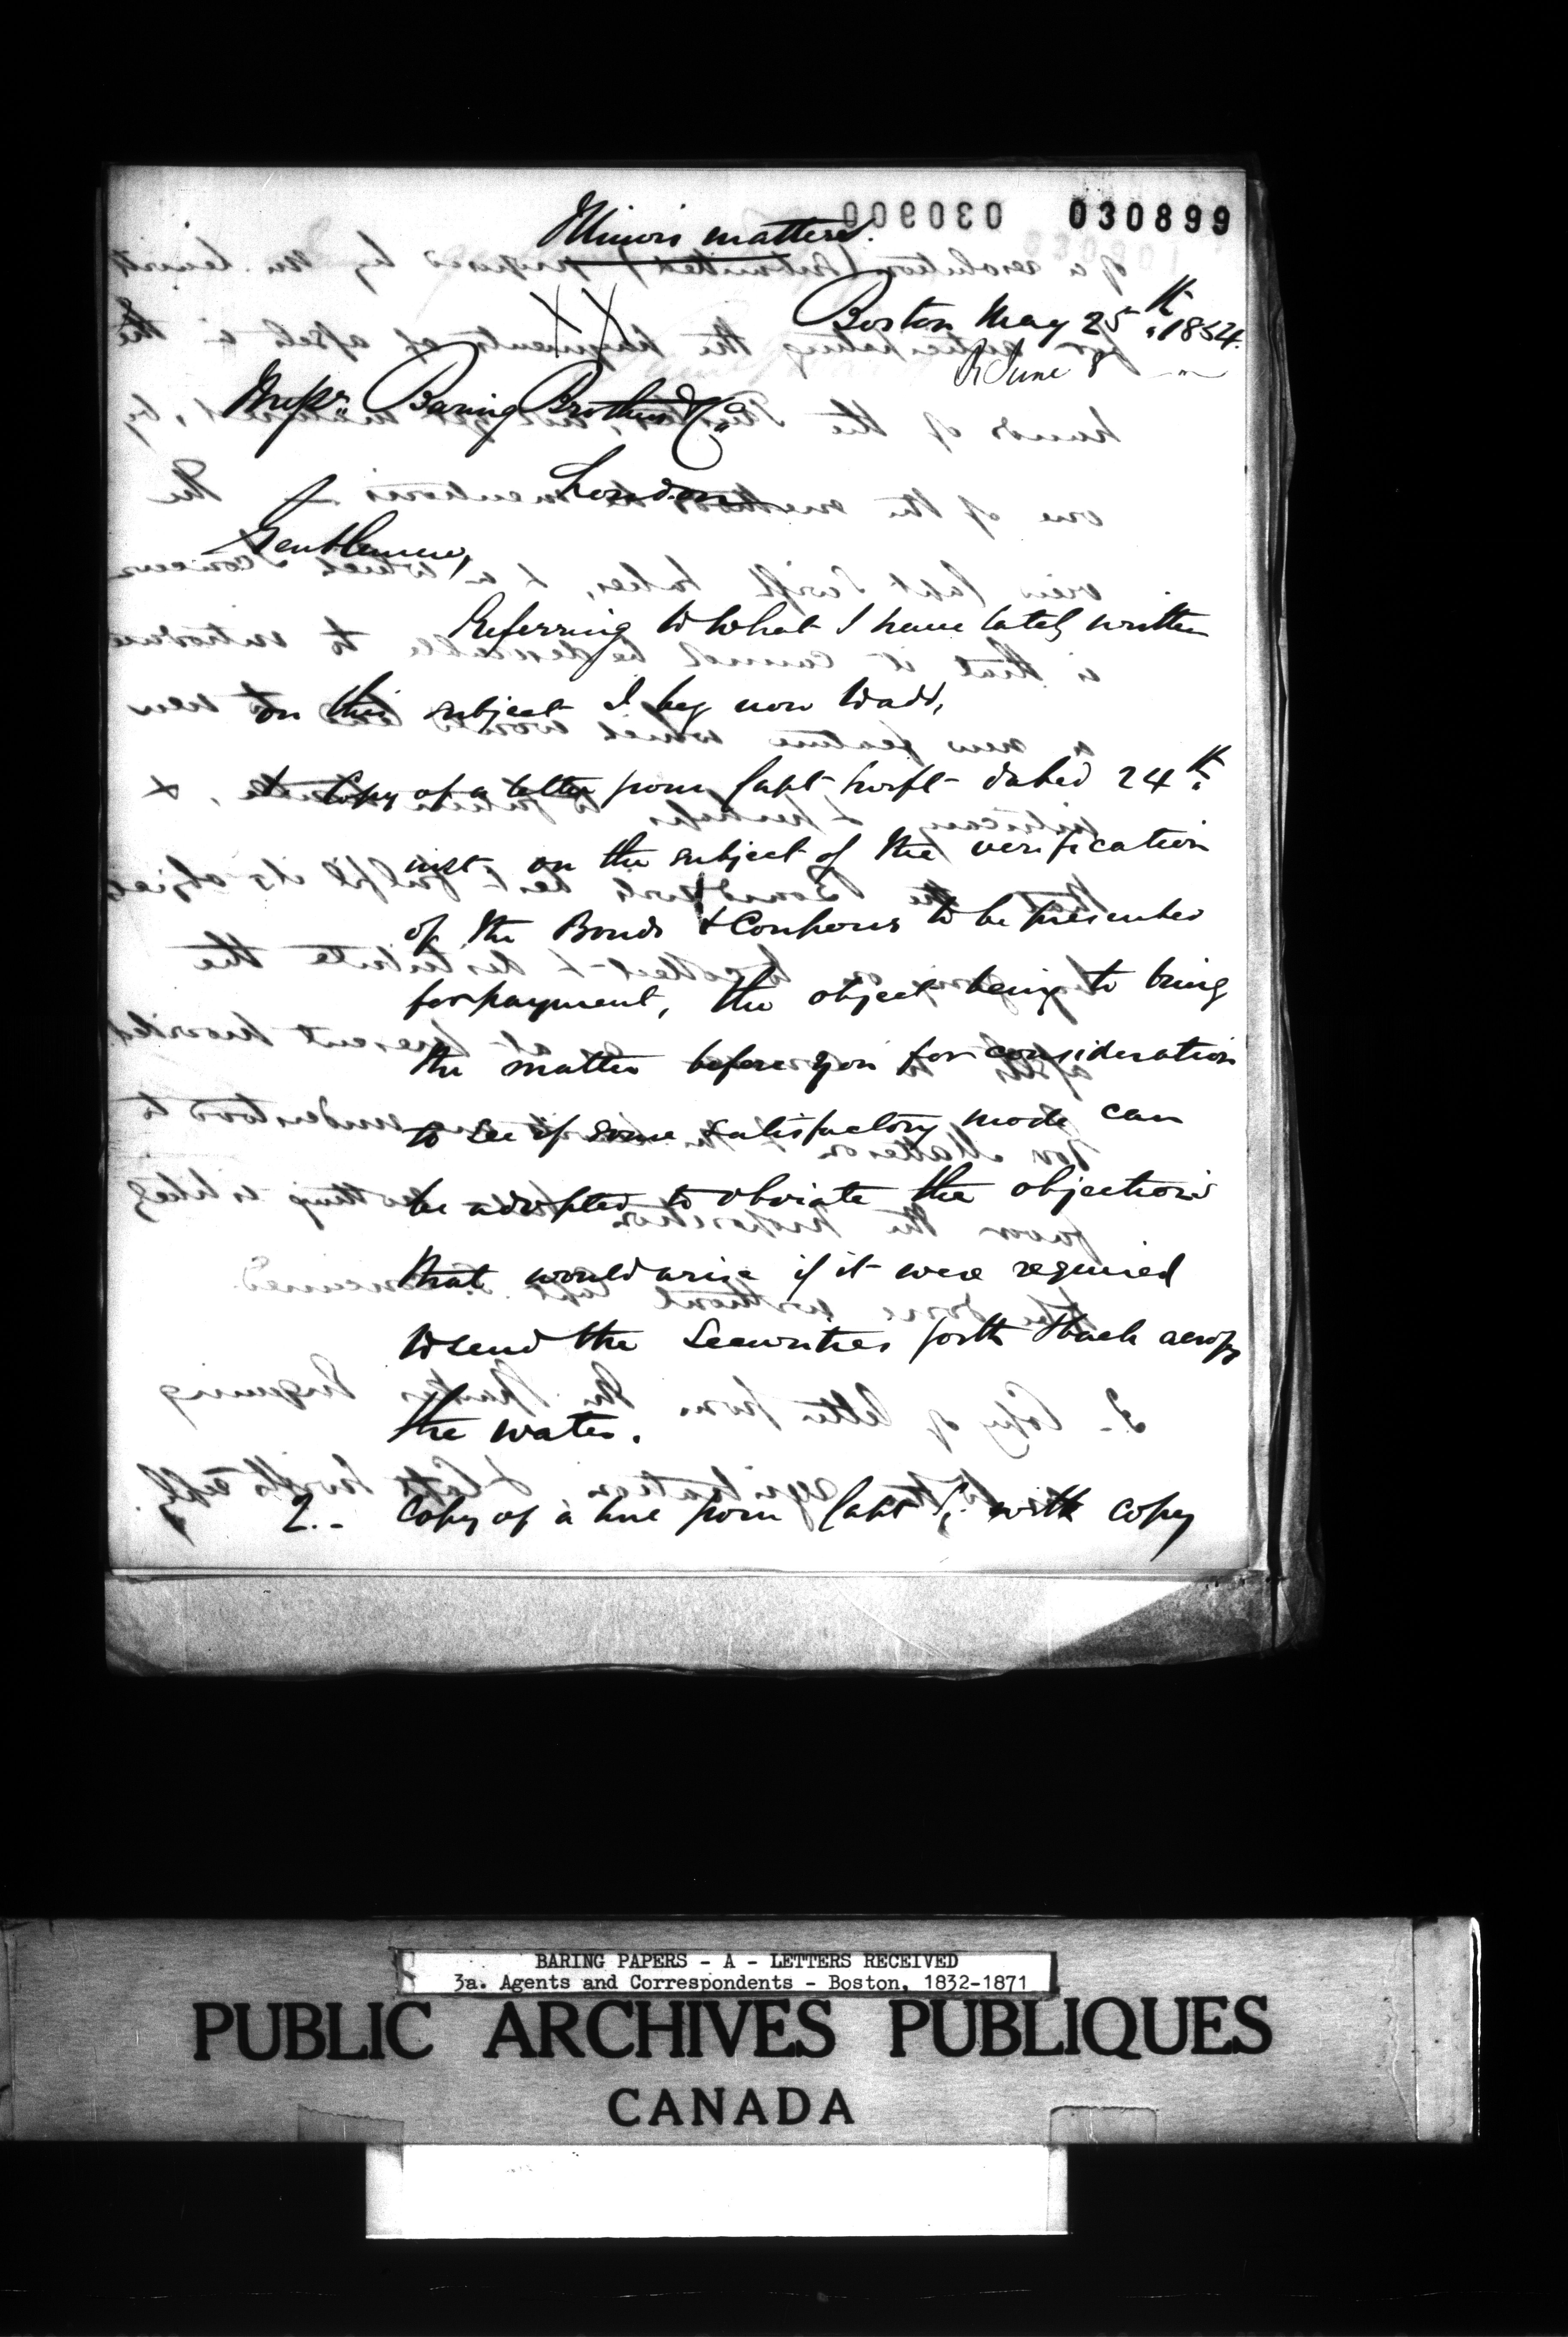 030899
Illinois matters.
Boston May 25th 1854.
R June 8
Messrs Baring Brothers & Co
London
Gentlemen,
Referring to what I have lately written
on this subject I beg now to add,
1 Copy of a letter from Capt Swift dated 24th
inst on the subject of the verification
of the Bonds & Coupons to be presented
for payment, the object being to bring
the matter before you for consideration
to see if some satisfactory mode can
be adopted to obviate the objections
that would arise if it were required
to send the Securities forth & back across
the water.
2.- Copy of a line from Capt S. with copy
BARING PAPERS - A - LETTERS RECEIVED
3a. Agents and Correspondents - Boston, 1832-1871
PUBLIC ARCHIVES PUBLIQUES
CANADA